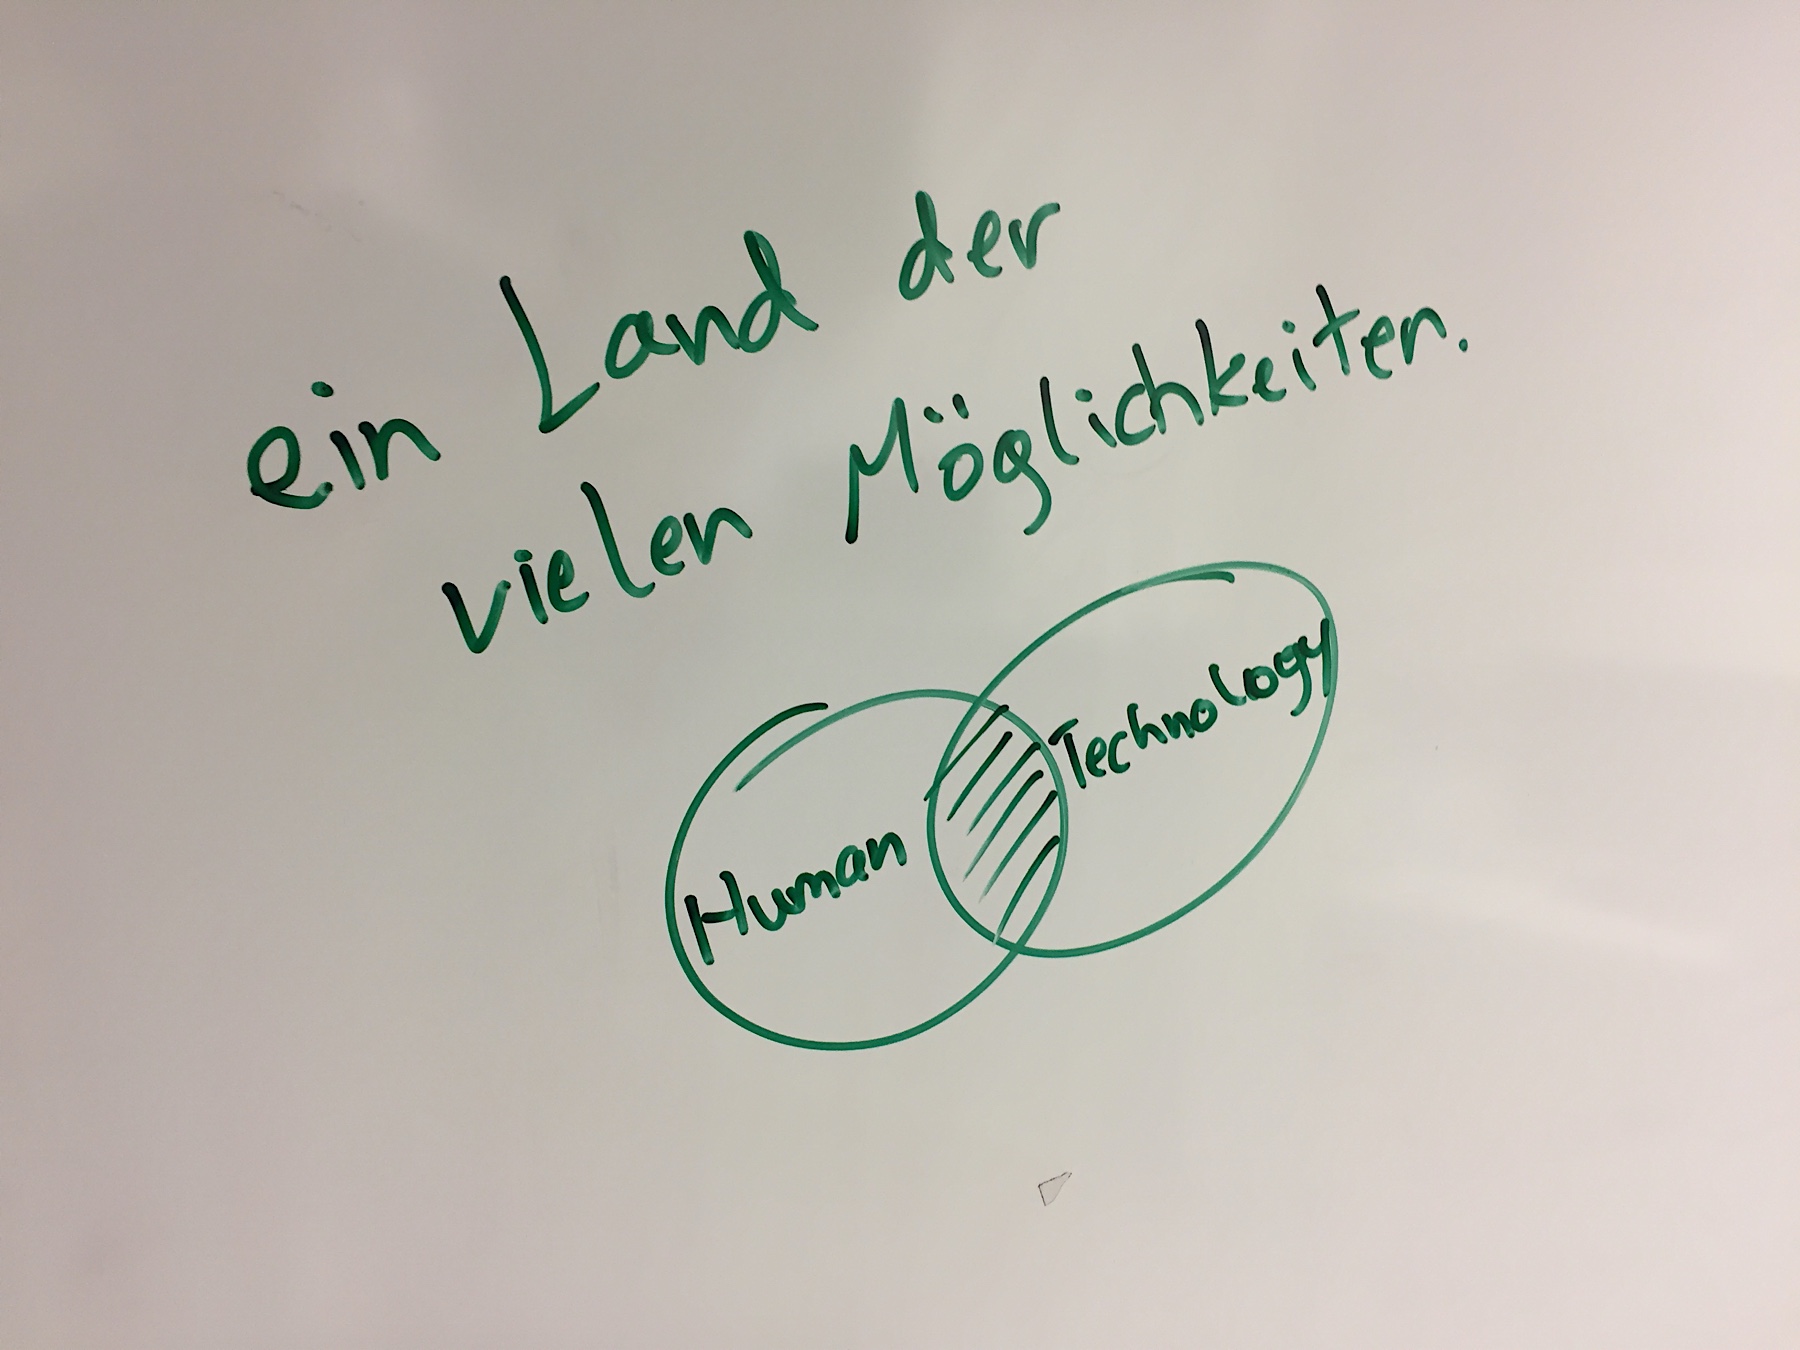 ein Land der
vielen Möglichkeiten.
Human
Technology